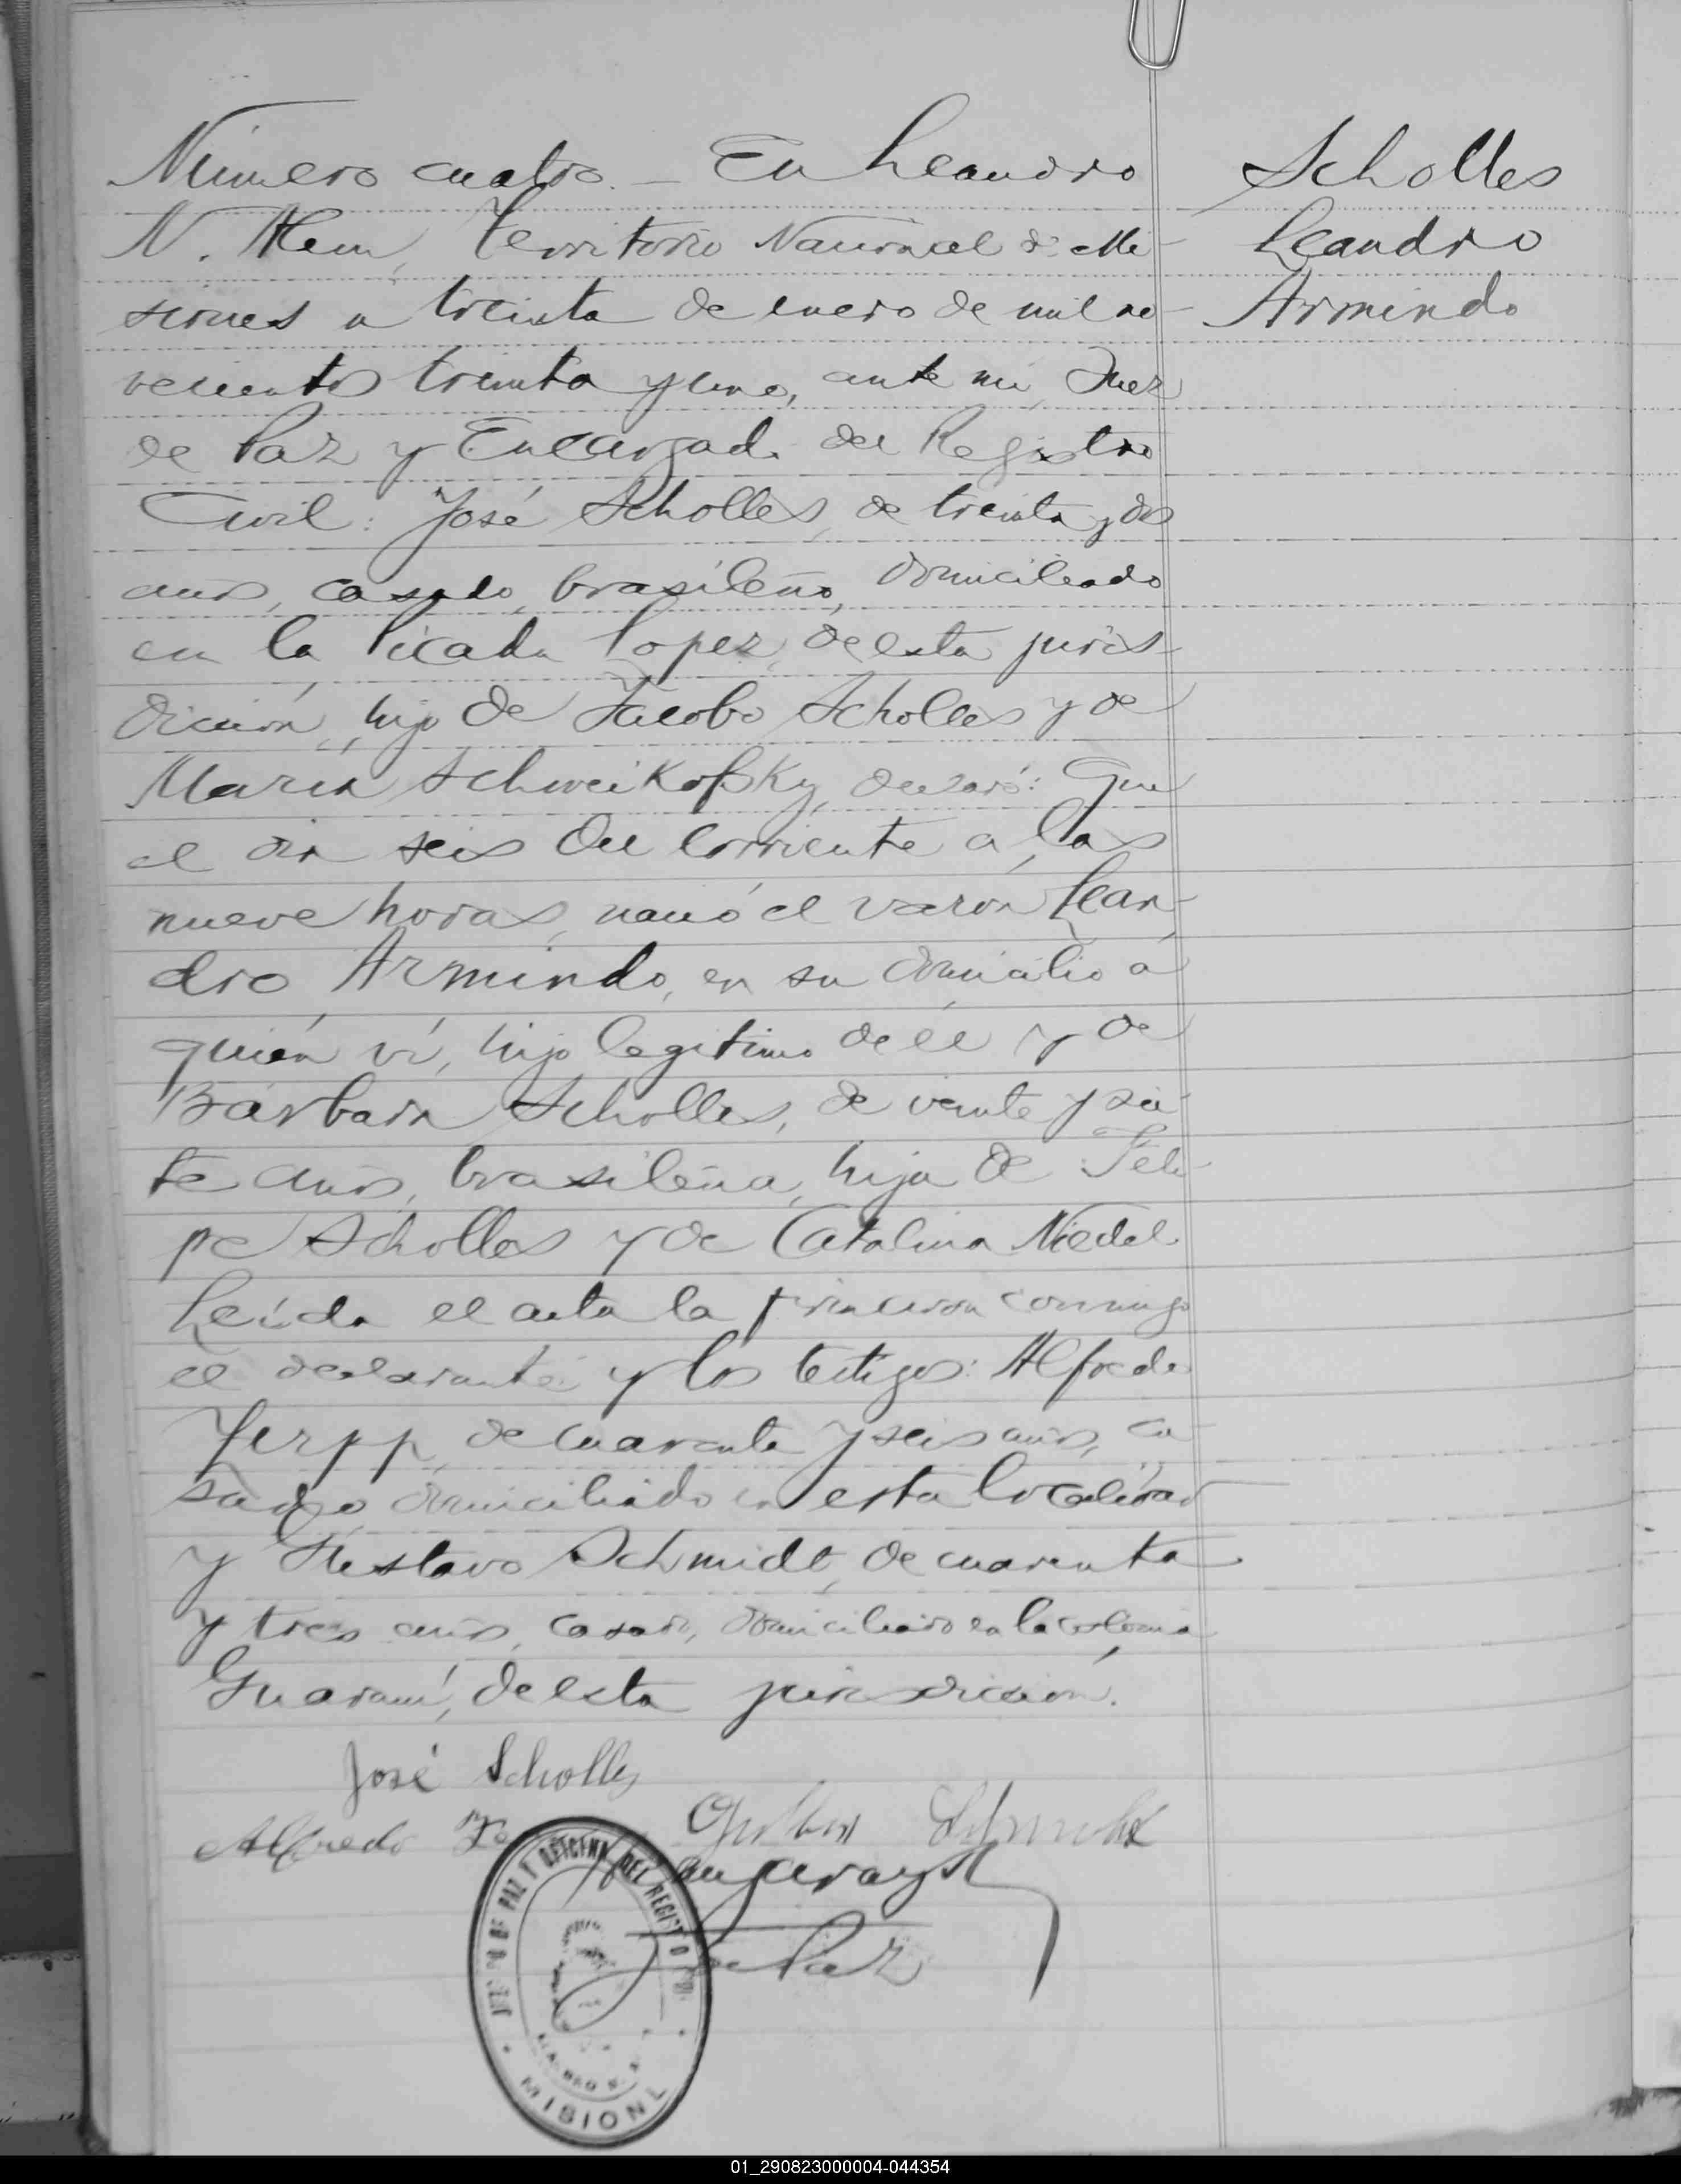 Número cuatro. — En Leandro
N. Alem, Territorio Nacional de Mi-
siones a treinta de enero de mil no-
vecientos treinta y uno, ante mi, Juez
de Paz y Encargado del Registro
Civil: José Scholles, de treinta y dos
años, casado, brasileño, domiciliado
en la Picada Lopez, de esta juris-
dicción, hijo de Jacobo Scholles y de
María Schweikofsky, declaró: Que
el día seis del corriente a las
nueve horas, nació el varón Lean-
dro Armindo, en su domicilio a
quién ví, hijo legitimo de él y de
Bárbara Scholles, de veinte y sie-
te años, brasileña, hija de Feli-
pe Scholles y de Catalina Niedel.
Leída el acta la firmaron conmigo
el declarante y los testigos: Alfredo
Zerpp, de cuarenta y seis años, ca-
sado, domiciliado en esta localidad
y Gustavo Schmidt, de cuarenta
y tres años, casado, domiciliado en la colonia
Guaraní, de esta jurisdicción.
Scholles
Leandro
Armindo
José Scholles
Alfredo
de Paz
JUZGADO DE PAZ Y OFICINA DEL REGISTRO
MISIONES
01_290823000004-044354